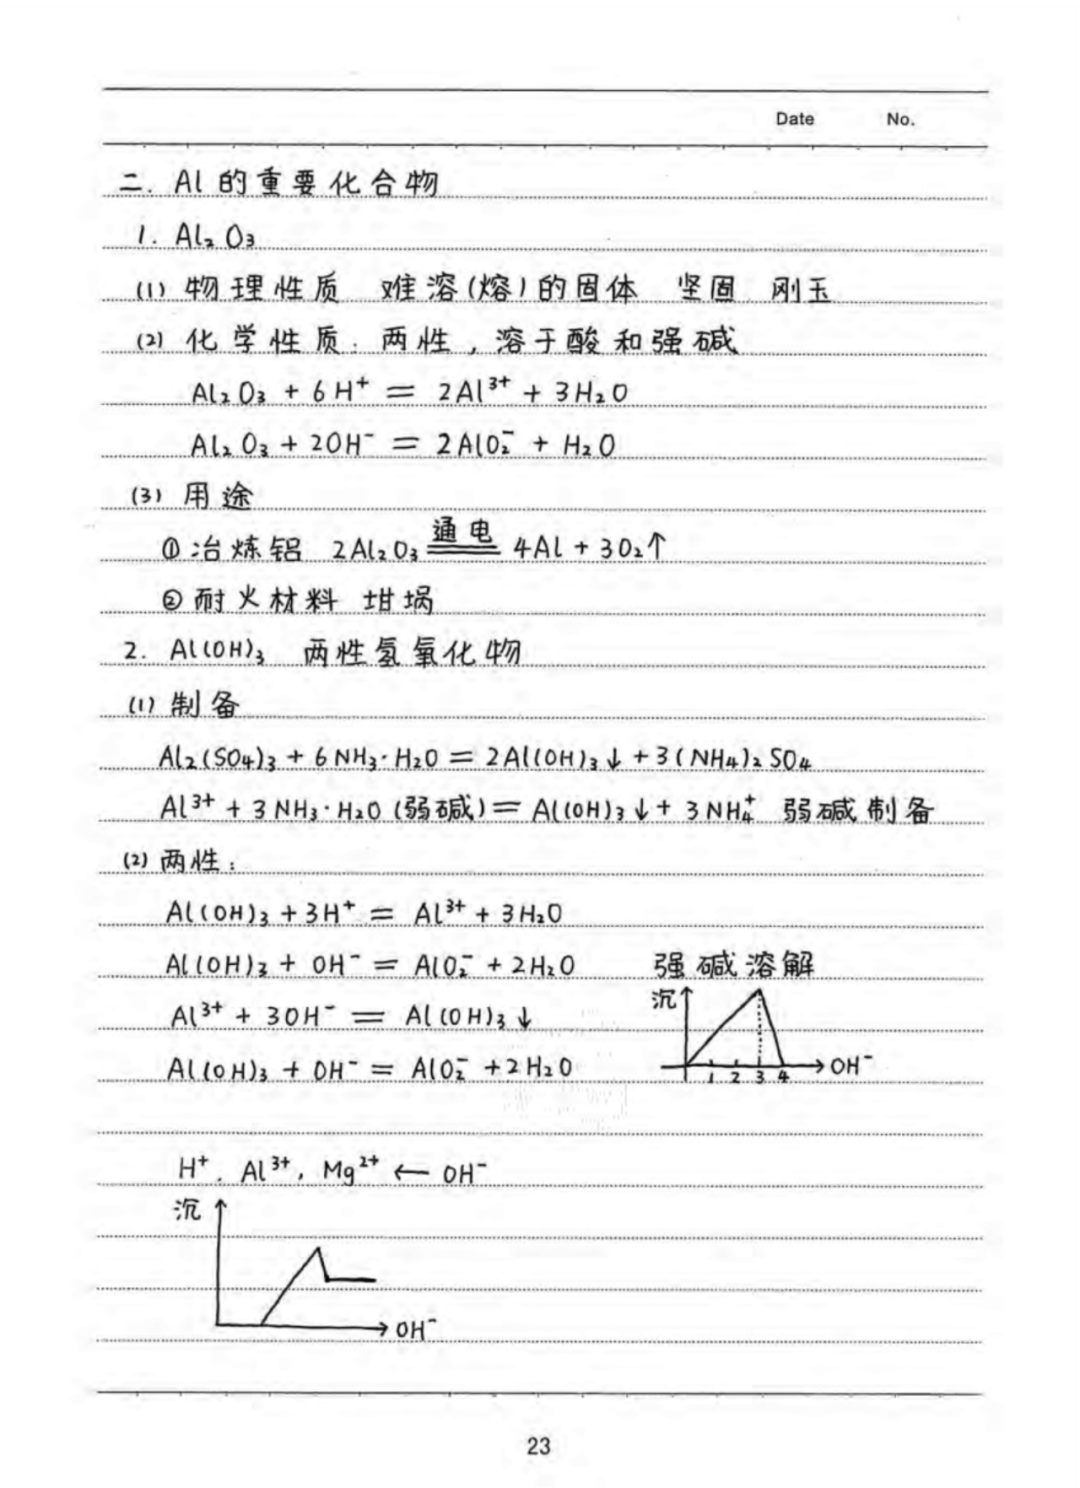 Date No.
二. Al 的重要化合物
1. Al₂O₃
(1) 物理性质 难溶(熔)的固体 坚固 刚玉
(2) 化学性质: 两性, 溶于酸和强碱
Al₂O₃ + 6H⁺ = 2Al³⁺ + 3H₂O
Al₂O₃ + 2OH⁻ = 2AlO₂⁻ + H₂O
(3) 用途
① 冶炼铝 2Al₂O₃ 通电 ═ 4Al + 3O₂↑
② 耐火材料 坩埚
2. Al(OH)₃ 两性氢氧化物
(1) 制备
Al₂(SO₄)₃ + 6NH₃·H₂O = 2Al(OH)₃↓ + 3(NH₄)₂SO₄
Al³⁺ + 3NH₃·H₂O (弱碱) = Al(OH)₃↓ + 3NH₄⁺ 弱碱制备
(2) 两性:
Al(OH)₃ + 3H⁺ = Al³⁺ + 3H₂O
Al(OH)₃ + OH⁻ = AlO₂⁻ + 2H₂O 强碱溶解
Al³⁺ + 3OH⁻ = Al(OH)₃↓
沉
Al(OH)₃ + OH⁻ = AlO₂⁻ + 2H₂O
1 2 3 4 OH⁻
H⁺, Al³⁺, Mg²⁺ ← OH⁻
沉
OH⁻
23